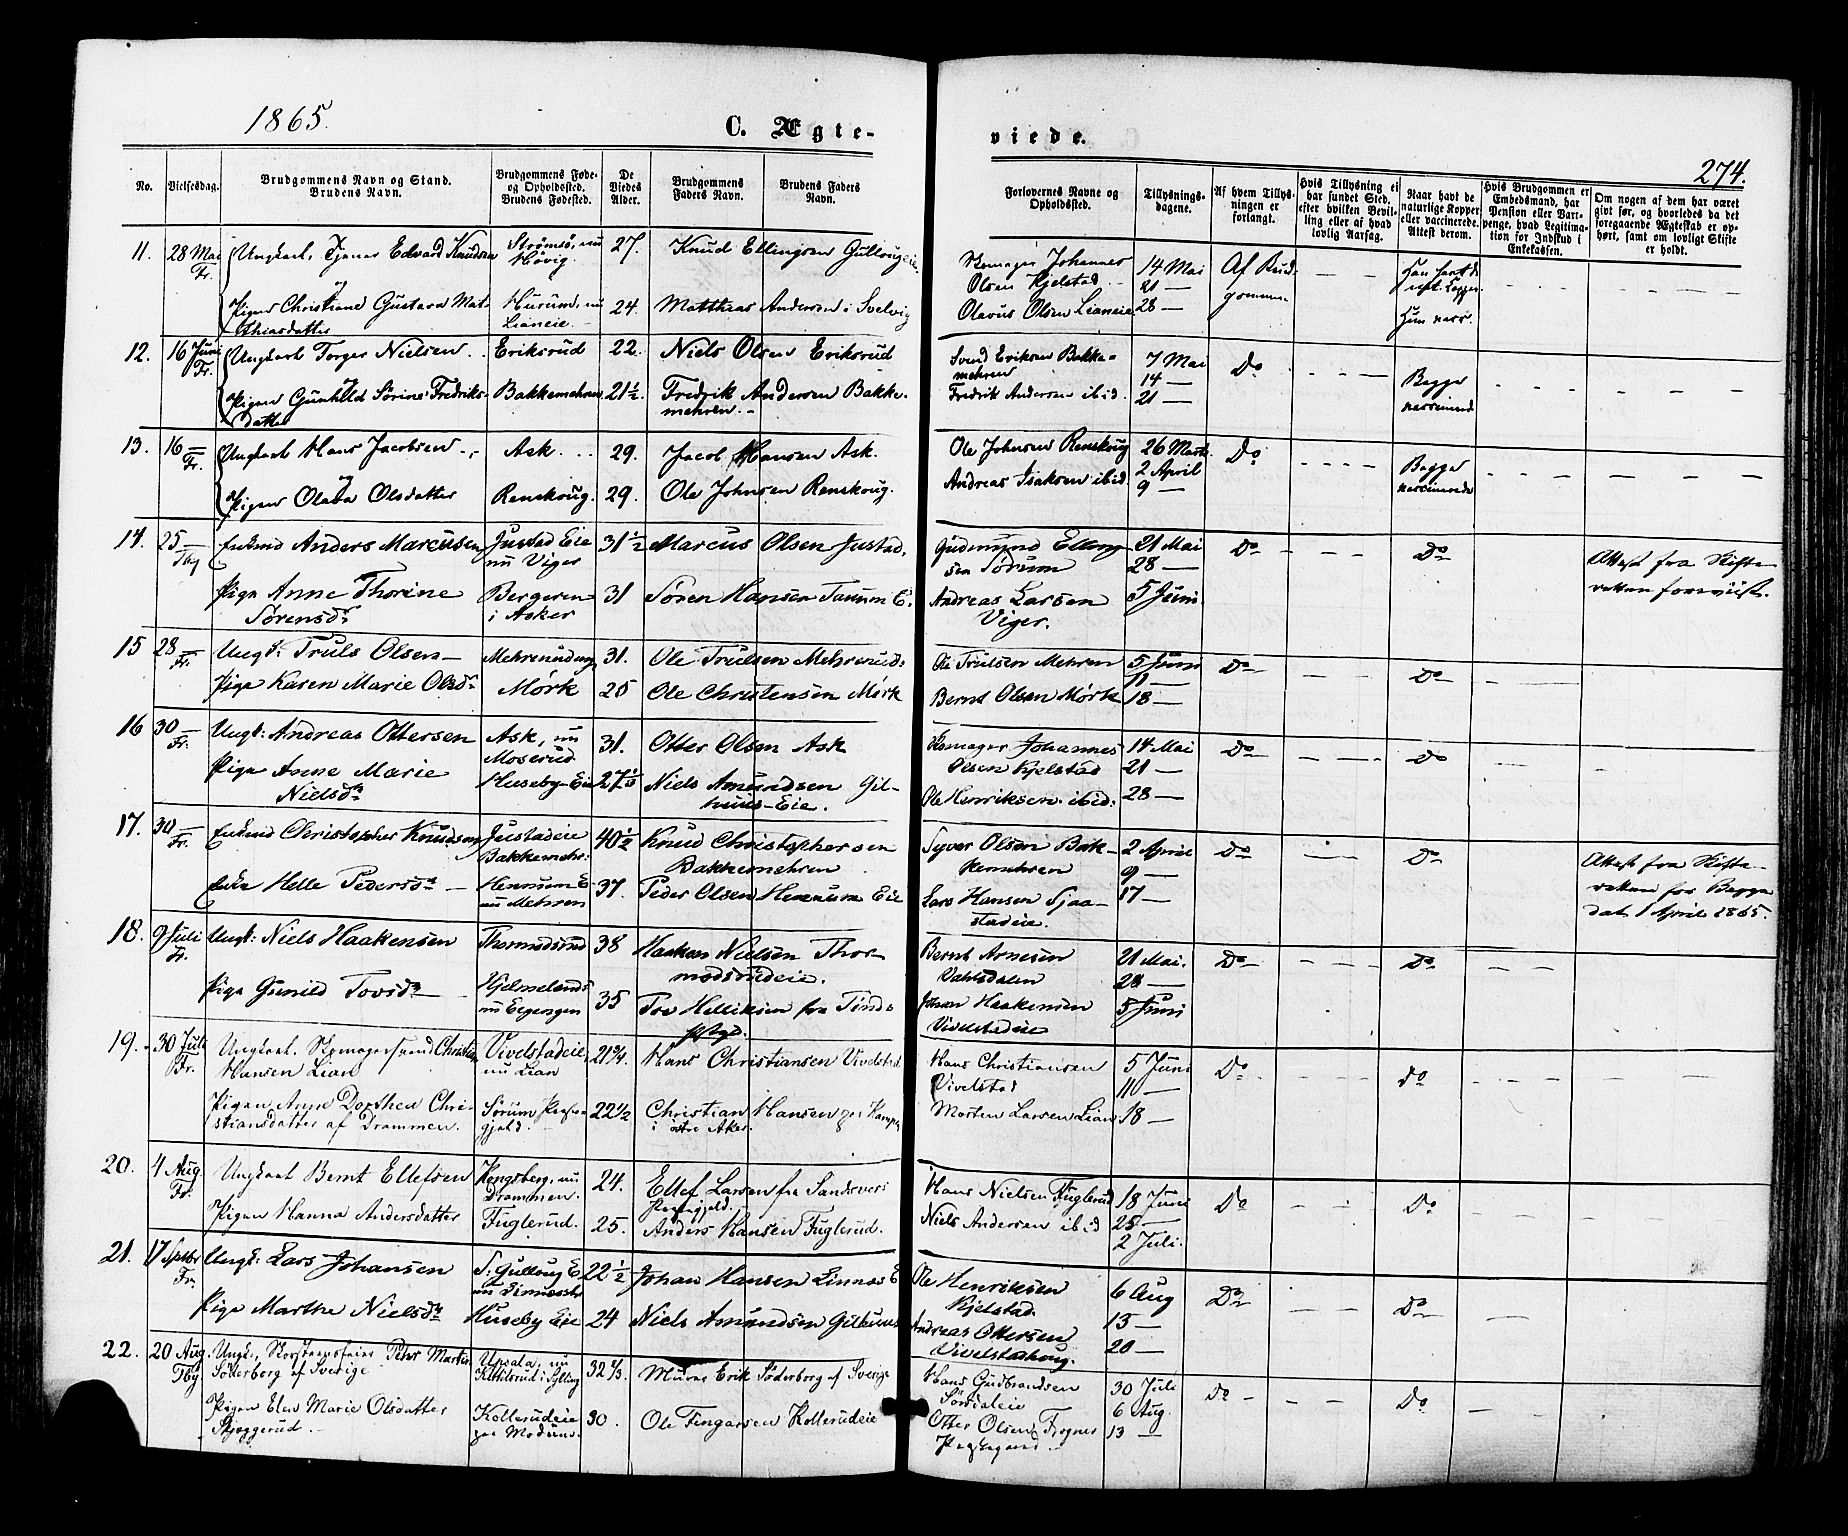 1865.
C. Ægte-
viede.
274.
No.
Vielsesdag.
Brudgommens Navn og Stand.
Brudens Navn.
Brudgommens Føde-
og Opholdsted.
Brudens Fødested.
De
Viedes
Alder.
Brudgommens
Faders Navn.
Brudens Faders
Navn.
Forlovernes Navne og
Opholdsted.
Tillysnings-
dagene.
Af hvem Tillys-
ningen er
forlangt.
Hvis Tillysning ei
har fundet Sted,
efter hvilken Bevil-
ling eller af hvad
lovlig Aarsag.
Naar havt de
naturlige Kopper
eller vaccinerede.
Attest derom.
Hvis Brudgommen er
Embedsmand, har
Pension eller Vart-
penge, hvad Legitima-
tion for Indskud i
Enkekassen.
Om nogen af dem har været
gift før, og hvorledes da det
foregaaende Ægteskab er op-
hørt, samt om lovligt Skifte
er holdt.
11. 28 Mai Ungkarl, Tjener Edvard Knudsen Strømsø, nu 27. Knud Ellingsen Gulloug Skomager Johannes 14 Mai Af Brud-
Fr. og Høvig. Olsen Kjelstad 21 — gommen
Pigen Christine Gustava Mat- Hurum, nu 24. Matthias Andersen i Svelvig Olavus Olsen Lianeie 28 —
thiasdatter Lianeie.
12. 16 Juni Ungkarl Torger Nielsen Eriksrud 22. Niels Olsen Eriksrud Svend Eriksen Bakke- 7 Mai Do
Fr. og mehren 14 —
Pigen Gunhild Sørine Fredriks- Bakkemehren 21½. Fredrik Andersen Bakke- Fredrik Andersen ibid. 21 — Begge
datter mehren.
13. 16 — Ungkarl Hans Jacobsen Ask. 29. Jacob Hansen Ask. Ole Johnsen Renskoug 26 Marts Do
Fr. og 2 April Begge
Pigen Olava Olsdatter Renskoug. 29. Ole Johnsen Renskoug. Andreas Isaksen ibid 9 — vaccinerede
14. 25 — Enkmd Anders Marcusen Justad Eie 31½ Marcus Olsen Justad, Gudmund Elling- 21 Mai Do Do Attest fra Skifte-
nu Viger sen Sørum 28 — retten foreviist.
Pige Anne Thorine Bergeren 31 Søren Hansen Tanum E. Andreas Larsen 5 Juni
Sørensdr i Asker Viger.
15 28 — Ungk: Truls Olsen 31. Ole Trulsen Mehrenrud Ole Trulsen Mehren 5 Juni Do Do
Fr. 11 —
Pige Karen Marie Olsdr Mørk 25 Ole Christensen Mørk Bernt Olsen Mørk 18 —
16 30 — Ungk: Andreas Ottersen Ask, nu 31. Otter Olsen Ask Skomager Johannes 14 Mai Do Do
Fr. Moserud Olsen Kjelstad 21 —
Pige Anne Marie Huseby-Eie Niels Amundsen Gil- Ole Henriksen ibid: 28 —
Nielsdr huus-Eie.
17. 30 — Enkmd Christopher Knudsen Justadeie 40½ Knud Christophersen Syver Olsen Bak- 2 April Do Do Attest fra Skifte-
Fr. Bakkemehr: Bakkemehren kemehren 9 — retten for Begge
Enke Helle Pedersdr Hennum E. 37. Peder Olsen Hennum Eie Lars Hansen Gjaa- 17 — dat. 1 April 1865.
nu Mehren stadeie.
18. 9 Juli Ungk: Niels Haakensen Thormodsrud 38 Haakon Nielsen Thor- Bernt Arnesen 21 Mai. Do Do
Fr. modsrudeie. 28 —
Pige Gunild Tovsdr 35 Tov Helliksen fra Tinds Haakensen 5 Juni
Prgj. Vivelstadeie
19. 30 Juli Ungkarl, Skomagersvend Christian Vivelstadeie, 21¾. Hans Christiansen Vivelstad Hans Christiansen 5 Juni Do Do
Fr. Hansen Lian nu Lian Vivelstad 11 —
Pigen Anne Dorthea Chri- Sørum Præste- 22½ Christian Hansen Morten Larsen Lian 18 —
stiansdatter af Drammen. gjeld. i østre Aker
20. 4 Aug. Ungkarl Bernt Ellefsen Kongsberg, nu 24. Ellef Larsen fra Sandsver Hans Nielsen Fuglerud 18 Juni Do Do
Fr. Drammen. Præstegjeld. 25 —
Pigen Hanna Andersdatter Fuglerud. 25. Anders Hansen Fuglerud. Niels Andersen ibid 2 Juli.
21. 17 Septbr Ungk: Lars Johansen S: Gulloug E 22½ Johan Hansen Linnes E Ole Henriksen 6 Aug Do Do
Fr. Kjelstad. 13 —
Pige Marthe Nielsdr Huseby Eie 24 Niels Amundsen Gilhuus Andreas Ottersen 20 —
Vivelstadhoug.
22. 20 Aug. Ungk., Skorsteensfeier Pehr Martin Upsala, nu 32⅔. Murm: Erik Söderborg af Sverige Hans Gudbrandsen 30 Juli Do Do
Söderborg af Sverige Kittilsrud i Sylling Sørsdaleie 6 Aug.
Pigen Elen Marie Olsdatter Kollerudeie 30. Ole Fingarsen Kollerudeie Otter Olsen Frogner 13 —
Skjeggerud. paa Modum. Præstegaard